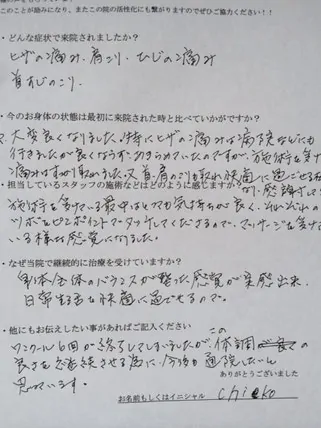 このことが励みになり、またこの院の活性化にも繋がりますのでぜひご協力ください！！
・どんな症状で来院されましたか？
ヒザの痛み、肩こり、ひじの痛み
首すじのこり、
・今のお身体の状態は最初に来院された時と比べていかがですか？
大変良くなりました。特にヒザの痛みは病院などにも
行きましたが良くならず、あきらめていたのですが、施術を受け
痛みはすが取れました。又、首、肩のこりも取れ快適に過ごせる様
になり、感謝して
・担当しているスタッフの施術などはどのように感じますか？
施術を受けている最中はとても気持ちが良く、それぞれの
ツボをピンポイントでタッチしてくださるので、マッサージを受けて
いる様な感覚になりました。
・なぜ当院で継続的に治療を受けていますか？
身体全体のバランスが整った感覚が実感出来、
日常生活を快適に過せるので。
・他にもお伝えしたい事があればご記入ください
ワンクール6回が終了してしまいましたが、この体調
良さを継続させる為に、今後も通院したいと
思っています。
ありがとうございました
お名前もしくはイニシャル chieko